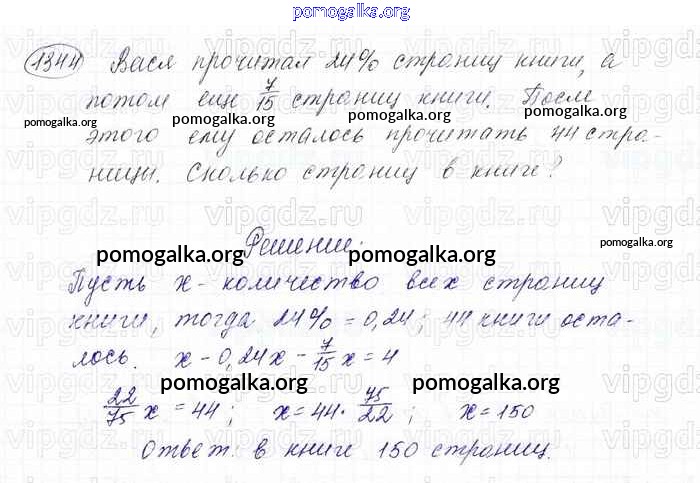 pomogalka.org
1344 Вася прочитал 24% страниц книги, а
потом еще 7/15 страниц книги. После
pomogalka.org pomogalka.org pomogalka.org
этого ему осталось прочитать 44 стра-
ницы. Сколько страниц в книге?
Решение:
pomogalka.org pomogalka.org pomogalka.org
Пусть x - количество всех страниц
книги, тогда 24% = 0,24; 44 книги оста-
лось. x - 0,24x - 7/15 x = 4
pomogalka.org pomogalka.org pomogalka.org
22/75 x = 44; x = 44 · 75/22; x = 150
Ответ: в книге 150 страниц.
vipgdz.ru